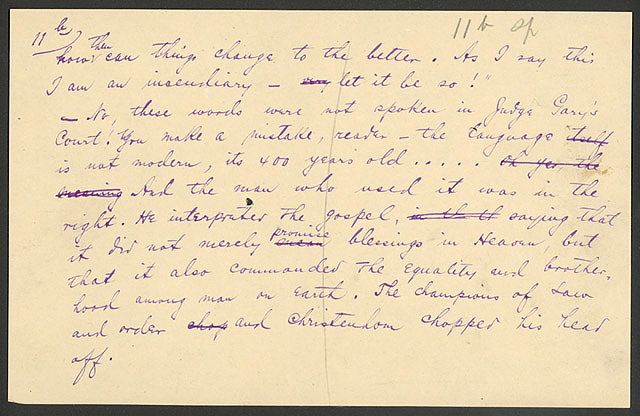 11 b 11 b sp
how then can things change to the better. As I say this
I am an incendiary — let it be so!"
— No, these words were not spoken in Judge Gary's
Court! You make a mistake, reader — the language itself
is not modern, its 400 years old..... Oh yes, the
meaning And the man who used it was in the
right. He interpreted the gospel, saying that
it did not merely mean promise blessings in Heaven, but
that it also commanded the equality and brother-
hood among man on Earth. The champions of Law
and order chop and christendom chopped his head
off.